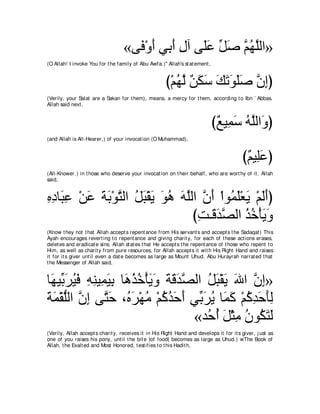 «اللَّهُمَّ صَلِّ عَلَى آلِ أَبِي أَوْفَى»
(O Allah! I invoke You for the family of Abu Awfa.)" Allah's statement,
(إِنَّ صَلَوَتَكَ سَكَنٌ لَّهُمْ)
(Verily, your Salat are a Sakan for them), means, a mercy for them, according to Ibn `Abbas. Allah said next,
(وَاللَّهُ سَمِيعٌ)
(and Allah is All-Hearer,) of your invocation (O Muhammad),
(عَلِيمٌ)
(All-Knower.) in those who deserve your invocation on their behalf, who are worthy of it. Allah said,
(أَلَمْ يَعْلَمُواْ أَنَّ اللَّهَ هُوَ يَقْبَلُ التَّوْبَةَ عَنْ عِبَادِهِ وَيَأْخُذُ الصَّدَقَـتِ)
(Know they not that Allah accepts repentance from His servants and accepts the Sadaqat) This Ayah encourages reverting to repentance and giving charity, for each of these actions erases, deletes and eradicate sins. Allah states that He accepts the repentance of those who repent to Him, as well as charity from pure resources, for Allah accepts it with His Right Hand and raises it for its giver until even a date becomes as large as Mount Uhud. Abu Hurayrah narrated that the Messenger of Allah said,
«إِنَّ اللهَ يَقْبَلُ الصَّدَقَةَ وَيَأْخُذُهَا بِيَمِينِهِ فَيُرَبِّيهَا لِأَحَدِكُمْ كَمَا يُرَبِّي أَحَدُكُمْ مُهْرَهُ، حَتَّى إِنَّ اللُّقْمَةَ لَتَكُونُ مِثْلَ أُحُد»
(Verily, Allah accepts charity, receives it in His Right Hand and develops it for its giver, just as one of you raises his pony, until the bite (of food) becomes as large as Uhud.) wThe Book of Allah, the Exalted and Most Honored, testifies to this Hadith,